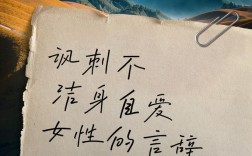 讽刺不
洁身自爱
女性的言辞